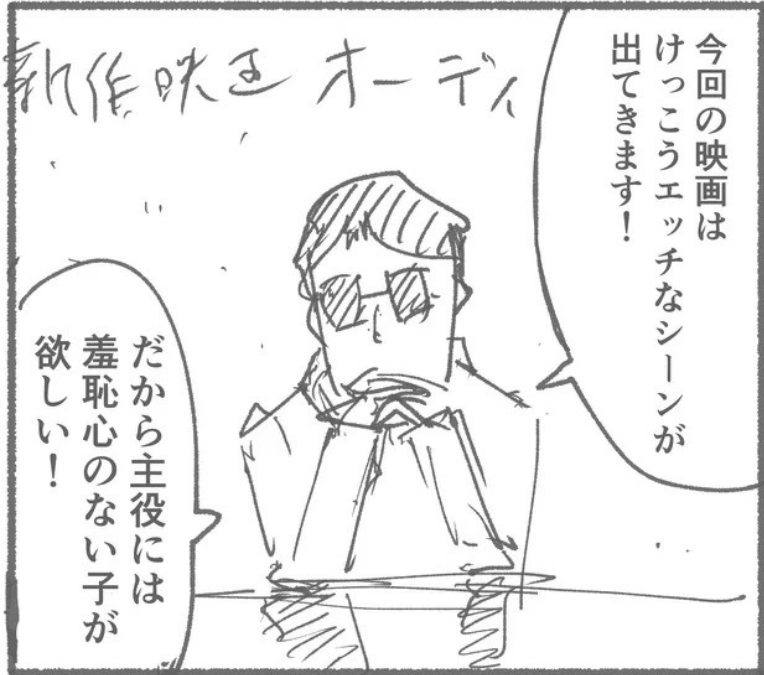 新作映画 オーディ
今回の映画は
けっこうエッチなシーンが
出てきます！
だから主役には
羞恥心のない子が
欲しい！